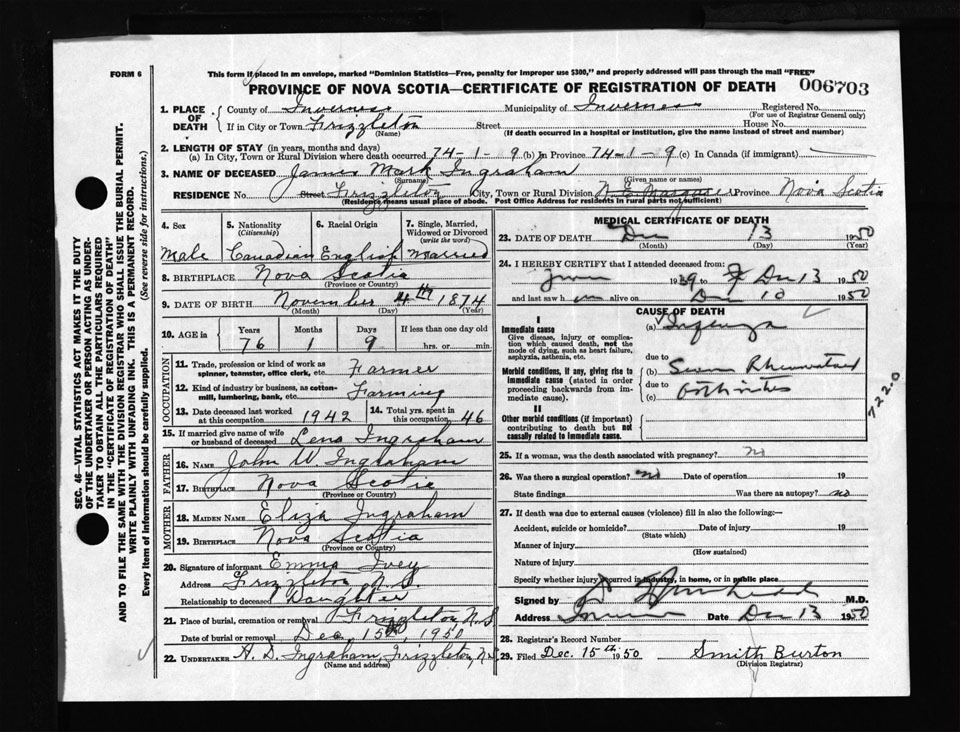 FORM 6
This form if placed in an envelope, marked "Dominion Statistics—Free, penalty for improper use $300," and properly addressed will pass through the mail "FREE"
PROVINCE OF NOVA SCOTIA—CERTIFICATE OF REGISTRATION OF DEATH 006703
SEC. 46—VITAL STATISTICS ACT MAKES IT THE DUTY
OF THE UNDERTAKER OR PERSON ACTING AS UNDER-
TAKER TO OBTAIN ALL THE PARTICULARS REQUIRED
IN THE "CERTIFICATE OF REGISTRATION OF DEATH"
AND TO FILE THE SAME WITH THE DIVISION REGISTRAR WHO SHALL ISSUE THE BURIAL PERMIT.
WRITE PLAINLY WITH UNFADING INK. THIS IS A PERMANENT RECORD.
Every item of information should be carefully supplied. (See reverse side for instructions.)
1. PLACE OF DEATH
County of Inverness Municipality of Inverness Registered No.
(For use of Registrar General only)
If in City or Town Frizzleton Street House No.
(Name) (If death occurred in a hospital or institution, give the name instead of street and number)
2. LENGTH OF STAY (in years, months and days)
(a) In City, Town or Rural Division where death occurred 74-1-9 (b) In Province 74-1-9 (c) In Canada (if immigrant)
3. NAME OF DECEASED James Mark Ingraham
(Surname) (Given name or names)
RESIDENCE No Street Frizzleton City, Town or Rural Division N. E. Margaree Province Nova Scotia
(Residence means usual place of abode. Post Office Address for residents in rural parts not sufficient)
4. Sex
Male
5. Nationality
(Citizenship)
Canadian
6. Racial Origin
English
7. Single, Married,
Widowed or Divorced
(write the word)
Married
8. BIRTHPLACE Nova Scotia
(Province or Country)
9. DATE OF BIRTH November 4th 1874
(Month) (Day) (Year)
10. AGE in
Years Months Days If less than one day old
76 1 9 hrs. or min.
OCCUPATION
11. Trade, profession or kind of work as
spinner, teamster, office clerk, etc. Farmer
12. Kind of industry or business, as cotton-
mill, lumbering, bank, etc. Farming
13. Date deceased last worked
at this occupation 1942
14. Total yrs. spent in
this occupation 46
15. If married give name of wife
or husband of deceased Lena Ingraham
FATHER
16. NAME John W. Ingraham
17. BIRTHPLACE Nova Scotia
(Province or Country)
MOTHER
18. MAIDEN NAME Eliza Ingraham
19. BIRTHPLACE Nova Scotia
(Province or Country)
20. Signature of informant Emma Ivey
Address Frizzleton N.S.
Relationship to deceased Daughter
21. Place of burial, cremation or removal Frizzleton N.S
Date of burial or removal Dec. 15th, 1950
22. UNDERTAKER H. D. Ingraham, Frizzleton, N.S.
(Name and address)
MEDICAL CERTIFICATE OF DEATH
23. DATE OF DEATH Dec 13 1950
(Month) (Day) (Year)
24. I HEREBY CERTIFY that I attended deceased from:
1939 to Dec 13 1950
and last saw him alive on Dec 10 1950
CAUSE OF DEATH
I
Immediate cause
Give disease, injury or complica-
tion which caused death, not the
mode of dying, such as heart failure,
asphyxia, asthenia, etc.
(a) Influenza
due to
Morbid conditions, if any, giving rise to
immediate cause (stated in order
proceeding backwards from im-
mediate cause).
(b) Severe Rheumatoid
due to
(c) Arthritis
7220
II
Other morbid conditions (if important)
contributing to death but not
causally related to immediate cause.
25. If a woman, was the death associated with pregnancy? No
26. Was there a surgical operation? no Date of operation 19
State findings Was there an autopsy? no
27. If death was due to external causes (violence) fill in also the following:—
Accident, suicide or homicide? Date of injury 19
(State which)
Manner of injury
(How sustained)
Nature of injury
Specify whether injury occurred in industry, in home, or in public place
Signed by M.D.
Address Date Dec 13 1950
28. Registrar's Record Number
29. Filed Dec. 15th 1950 Smith Burton
(Division Registrar)